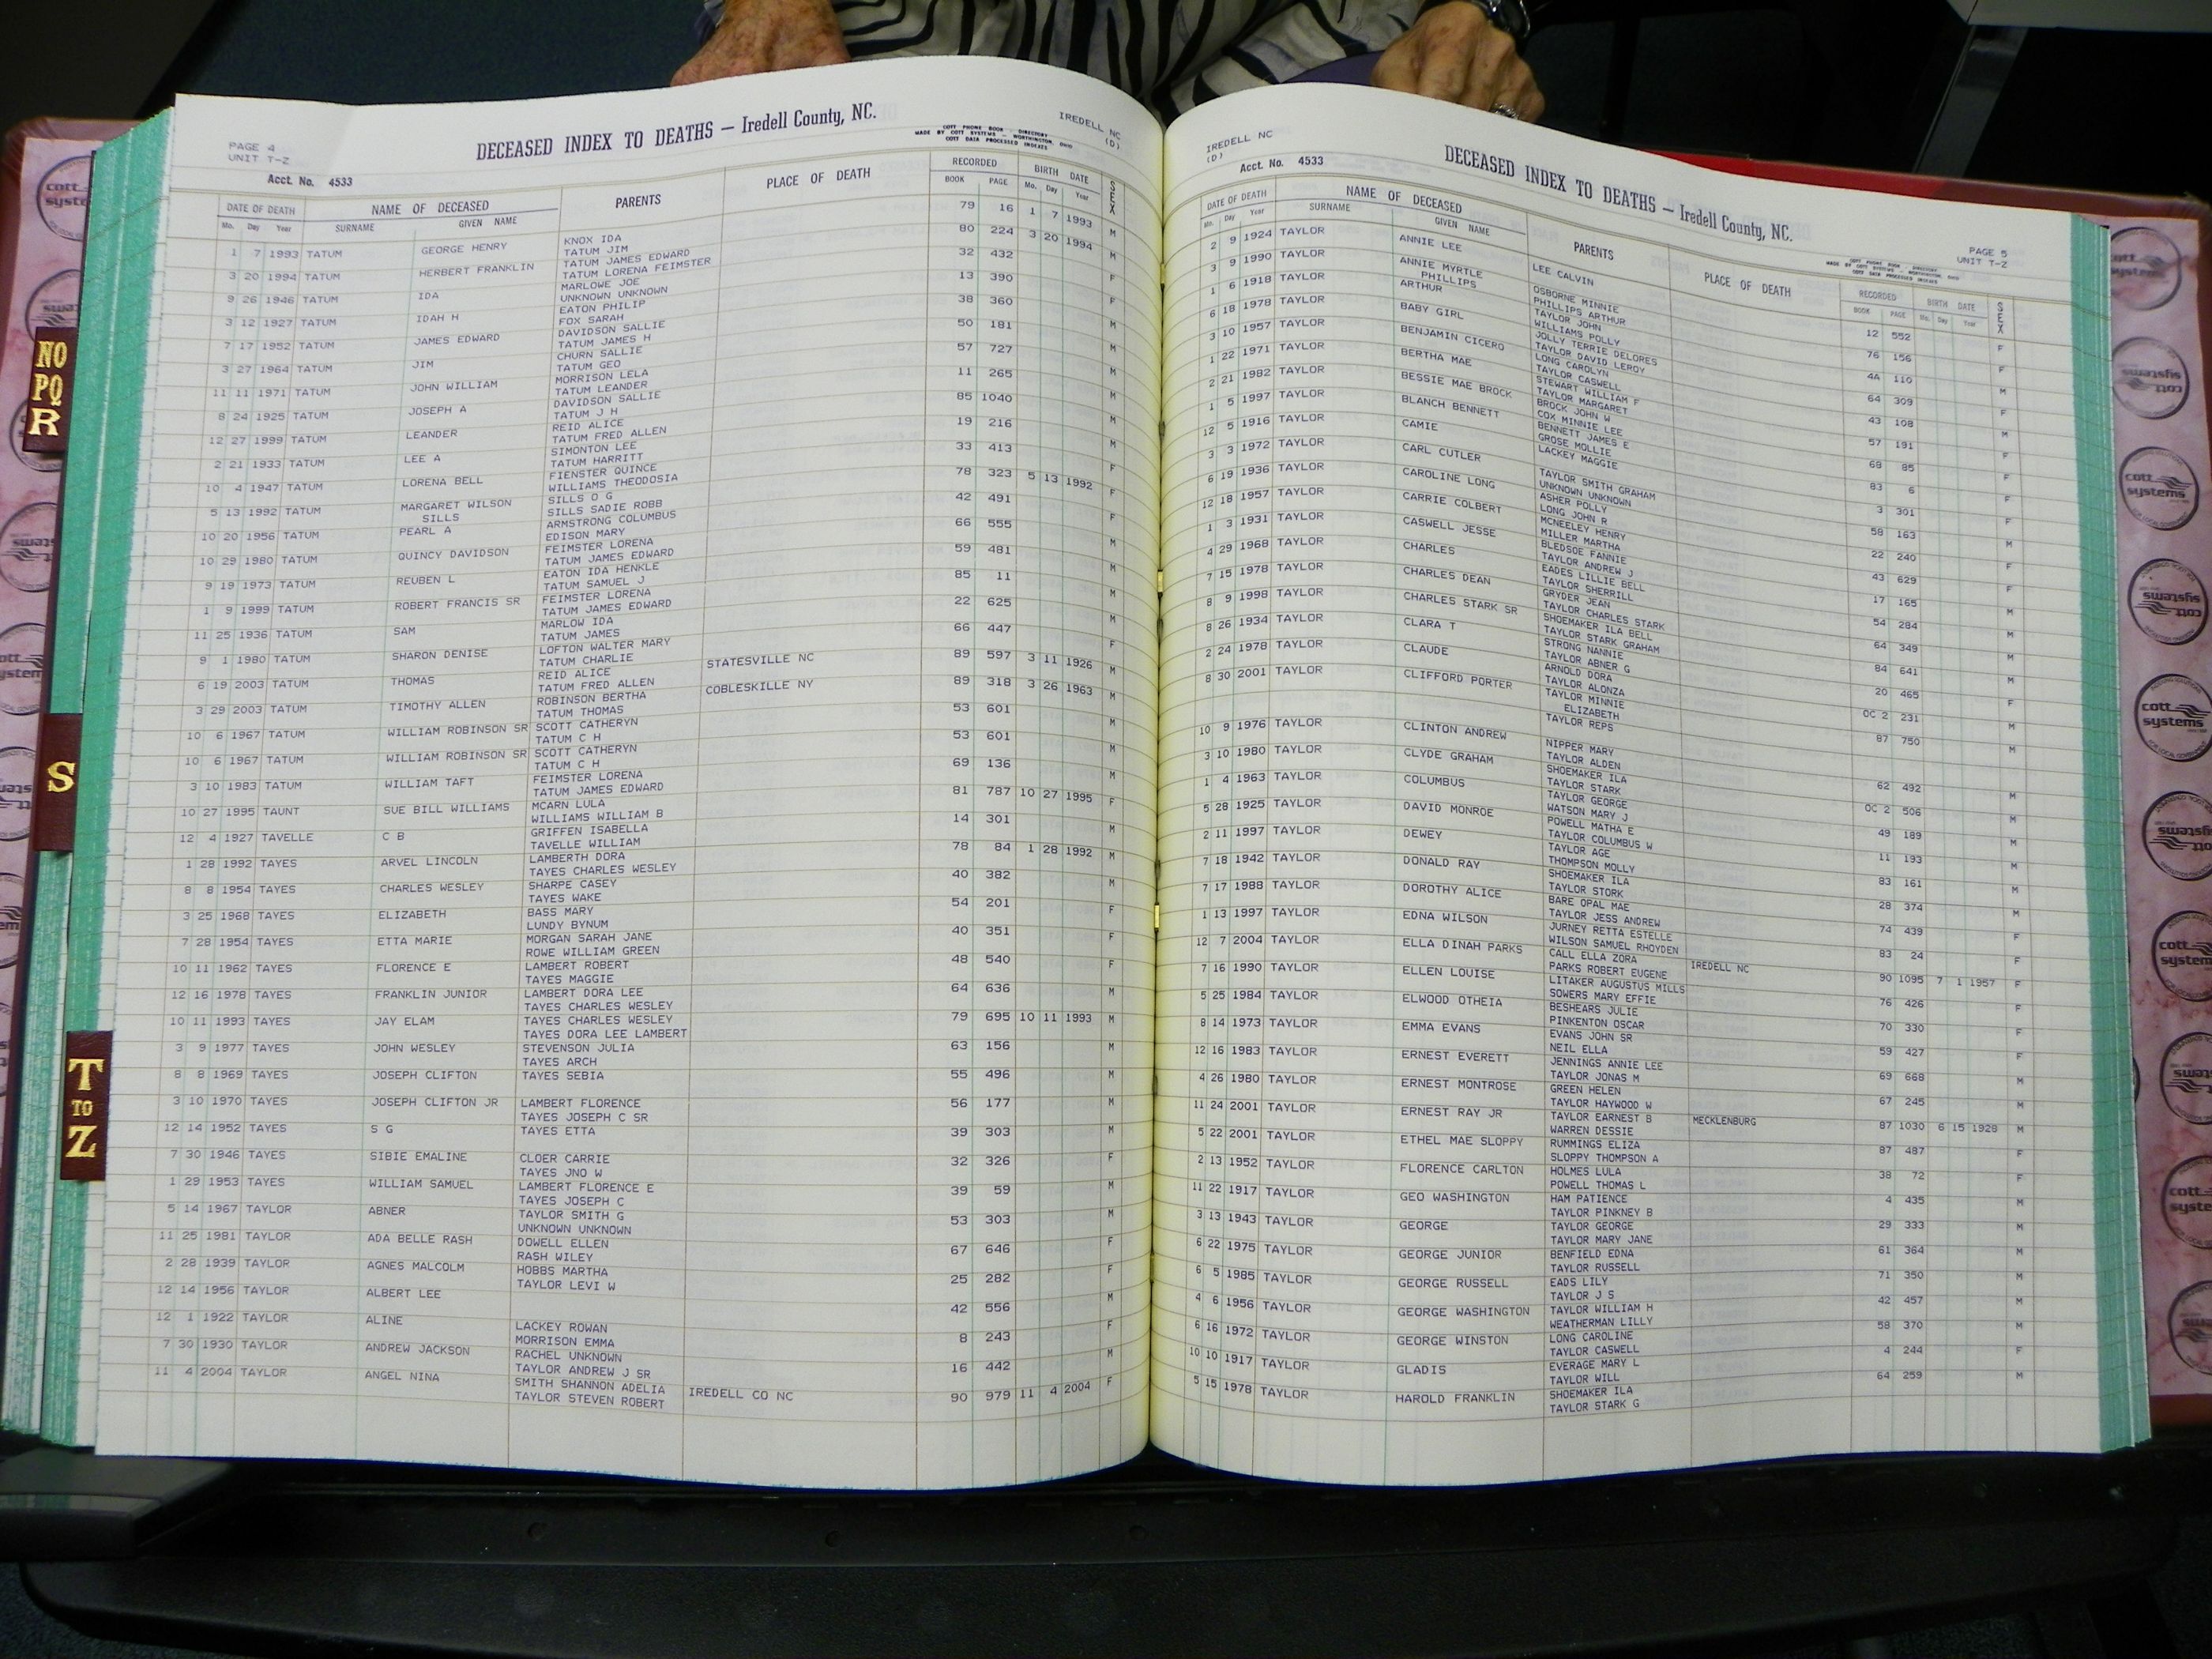 PAGE 4
UNIT T-Z
DECEASED INDEX TO DEATHS — Iredell County, NC.
COTT PHONE BOOK - DIRECTORY
MADE BY COTT SYSTEMS - WORTHINGTON, OHIO
COTT DATA PROCESSED INDEXES
IREDELL NC
(D)
Acct. No. 4533
DATE OF DEATH NAME OF DECEASED PARENTS PLACE OF DEATH RECORDED BIRTH DATE SEX
Mo. Day Year SURNAME GIVEN NAME BOOK PAGE Mo. Day Year
1 7 1993 TATUM GEORGE HENRY KNOX IDA 79 16 1 7 1993 M
TATUM JIM
3 20 1994 TATUM HERBERT FRANKLIN TATUM JAMES EDWARD 80 224 3 20 1994 M
TATUM LORENA FEIMSTER
9 26 1946 TATUM IDA MARLOWE JOE 32 432 F
UNKNOWN UNKNOWN
3 12 1927 TATUM IDAH H EATON PHILIP 13 390 F
FOX SARAH
7 17 1952 TATUM JAMES EDWARD DAVIDSON SALLIE 38 360 M
TATUM JAMES H
3 27 1964 TATUM JIM CHURN SALLIE 50 181 M
TATUM GEO
11 11 1971 TATUM JOHN WILLIAM MORRISON LELA 57 727 M
TATUM LEANDER
8 24 1925 TATUM JOSEPH A DAVIDSON SALLIE 11 265 M
TATUM J H
12 27 1999 TATUM LEANDER REID ALICE 85 1040 M
TATUM FRED ALLEN
2 21 1933 TATUM LEE A SIMONTON LEE 19 216 M
TATUM HARRITT
10 4 1947 TATUM LORENA BELL FIENSTER QUINCE 33 413 F
WILLIAMS THEODOSIA
5 13 1992 TATUM MARGARET WILSON SILLS O G 78 323 5 13 1992 F
SILLS SILLS SADIE ROBB
10 20 1956 TATUM PEARL A ARMSTRONG COLUMBUS 42 491 F
EDISON MARY
10 29 1980 TATUM QUINCY DAVIDSON FEIMSTER LORENA 66 555 M
TATUM JAMES EDWARD
9 19 1973 TATUM REUBEN L EATON IDA HENKLE 59 481 M
TATUM SAMUEL J
1 9 1999 TATUM ROBERT FRANCIS SR FEIMSTER LORENA 85 11 M
TATUM JAMES EDWARD
11 25 1936 TATUM SAM MARLOW IDA 22 625 M
TATUM JAMES
9 1 1980 TATUM SHARON DENISE LOFTON WALTER MARY 66 447 F
TATUM CHARLIE
6 19 2003 TATUM THOMAS REID ALICE STATESVILLE NC 89 597 3 11 1926 M
TATUM FRED ALLEN
3 29 2003 TATUM TIMOTHY ALLEN ROBINSON BERTHA COBLESKILLE NY 89 318 3 26 1963 M
TATUM THOMAS
10 6 1967 TATUM WILLIAM ROBINSON SR SCOTT CATHERYN 53 601 M
TATUM C H
10 6 1967 TATUM WILLIAM ROBINSON SR SCOTT CATHERYN 53 601 M
TATUM C H
3 10 1983 TATUM WILLIAM TAFT FEIMSTER LORENA 69 136 M
TATUM JAMES EDWARD
10 27 1995 TAUNT SUE BILL WILLIAMS MCARN LULA 81 787 10 27 1995 F
WILLIAMS WILLIAM B
12 4 1927 TAVELLE C B GRIFFEN ISABELLA 14 301 M
TAVELLE WILLIAM
1 28 1992 TAYES ARVEL LINCOLN LAMBERTH DORA 78 84 1 28 1992 M
TAYES CHARLES WESLEY
8 8 1954 TAYES CHARLES WESLEY SHARPE CASEY 40 382 M
TAYES WAKE
3 25 1968 TAYES ELIZABETH BASS MARY 54 201 F
LUNDY BYNUM
7 28 1954 TAYES ETTA MARIE MORGAN SARAH JANE 40 351 F
ROWE WILLIAM GREEN
10 11 1962 TAYES FLORENCE E LAMBERT ROBERT 48 540 F
TAYES MAGGIE
12 16 1978 TAYES FRANKLIN JUNIOR LAMBERT DORA LEE 64 636 M
TAYES CHARLES WESLEY
10 11 1993 TAYES JAY ELAM TAYES CHARLES WESLEY 79 695 10 11 1993 M
TAYES DORA LEE LAMBERT
3 9 1977 TAYES JOHN WESLEY STEVENSON JULIA 63 156 M
TAYES ARCH
8 8 1969 TAYES JOSEPH CLIFTON TAYES SEBIA 55 496 M
3 10 1970 TAYES JOSEPH CLIFTON JR LAMBERT FLORENCE 56 177 M
TAYES JOSEPH C SR
12 14 1952 TAYES S G TAYES ETTA 39 303 M
7 30 1946 TAYES SIBIE EMALINE CLOER CARRIE 32 326 F
TAYES JNO W
1 29 1953 TAYES WILLIAM SAMUEL LAMBERT FLORENCE E 39 59 M
TAYES JOSEPH C
5 14 1967 TAYLOR ABNER TAYLOR SMITH G 53 303 M
UNKNOWN UNKNOWN
11 25 1981 TAYLOR ADA BELLE RASH DOWELL ELLEN 67 646 F
RASH WILEY
2 28 1939 TAYLOR AGNES MALCOLM HOBBS MARTHA 25 282 F
TAYLOR LEVI W
12 14 1956 TAYLOR ALBERT LEE 42 556 M
12 1 1922 TAYLOR ALINE LACKEY ROWAN 8 243 F
MORRISON EMMA
7 30 1930 TAYLOR ANDREW JACKSON RACHEL UNKNOWN 16 442 M
TAYLOR ANDREW J SR
11 4 2004 TAYLOR ANGEL NINA SMITH SHANNON ADELIA IREDELL CO NC 90 979 11 4 2004 F
TAYLOR STEVEN ROBERT
IREDELL NC
(D)
Acct. No. 4533
DECEASED INDEX TO DEATHS — Iredell County, NC.
COTT PHONE BOOK - DIRECTORY
MADE BY COTT SYSTEMS - WORTHINGTON, OHIO
COTT DATA PROCESSED INDEXES
PAGE 5
UNIT T-Z
DATE OF DEATH NAME OF DECEASED PARENTS PLACE OF DEATH RECORDED BIRTH DATE SEX
Mo. Day Year SURNAME GIVEN NAME BOOK PAGE Mo. Day Year
2 9 1924 TAYLOR ANNIE LEE LEE CALVIN 12 552 F
3 9 1990 TAYLOR ANNIE MYRTLE OSBORNE MINNIE 76 156 F
PHILLIPS PHILLIPS ARTHUR
1 6 1918 TAYLOR ARTHUR TAYLOR JOHN 4A 110 M
WILLIAMS POLLY
6 18 1978 TAYLOR BABY GIRL JOLLY TERRIE DELORES 64 309 F
TAYLOR DAVID LEROY
3 10 1957 TAYLOR BENJAMIN CICERO LONG CAROLYN 43 108 M
TAYLOR CASWELL
1 22 1971 TAYLOR BERTHA MAE STEWART WILLIAM F 57 191 F
TAYLOR MARGARET
2 21 1982 TAYLOR BESSIE MAE BROCK BROCK JOHN W 68 85 F
COX MINNIE LEE
1 5 1997 TAYLOR BLANCH BENNETT BENNETT JAMES E 83 6 F
GROSE MOLLIE
12 5 1916 TAYLOR CAMIE LACKEY MAGGIE 3 301 F
3 3 1972 TAYLOR CARL CUTLER TAYLOR SMITH GRAHAM 58 163 M
UNKNOWN UNKNOWN
6 19 1936 TAYLOR CAROLINE LONG ASHER POLLY 22 240 F
LONG JOHN R
12 18 1957 TAYLOR CARRIE COLBERT MCNEELEY HENRY 43 629 F
MILLER MARTHA
1 3 1931 TAYLOR CASWELL JESSE BLEDSOE FANNIE 17 165 M
TAYLOR ANDREW J
4 29 1968 TAYLOR CHARLES EADES LILLIE BELL 54 284 M
TAYLOR SHERRILL
7 15 1978 TAYLOR CHARLES DEAN GRYDER JEAN 64 349 M
TAYLOR CHARLES STARK
8 9 1998 TAYLOR CHARLES STARK SR SHOEMAKER ILA BELL 84 641 M
TAYLOR STARK GRAHAM
8 26 1934 TAYLOR CLARA T STRONG NANNIE 20 465 F
TAYLOR ABNER G
2 24 1978 TAYLOR CLAUDE ARNOLD DORA OC 2 231 M
TAYLOR ALONZA
8 30 2001 TAYLOR CLIFFORD PORTER TAYLOR MINNIE 87 750 M
ELIZABETH
TAYLOR REPS
10 9 1976 TAYLOR CLINTON ANDREW NIPPER MARY 62 492 M
TAYLOR ALDEN
3 10 1980 TAYLOR CLYDE GRAHAM SHOEMAKER ILA OC 2 506 M
TAYLOR STARK
1 4 1963 TAYLOR COLUMBUS TAYLOR GEORGE 49 189 M
WATSON MARY J
5 28 1925 TAYLOR DAVID MONROE POWELL MATHA E 11 193 M
TAYLOR COLUMBUS W
2 11 1997 TAYLOR DEWEY TAYLOR AGE 83 161 M
THOMPSON MOLLY
7 18 1942 TAYLOR DONALD RAY SHOEMAKER ILA 28 374 M
TAYLOR STORK
7 17 1988 TAYLOR DOROTHY ALICE BARE OPAL MAE 74 439 F
TAYLOR JESS ANDREW
1 13 1997 TAYLOR EDNA WILSON JURNEY RETTA ESTELLE 83 24 F
WILSON SAMUEL RHOYDEN
12 7 2004 TAYLOR ELLA DINAH PARKS CALL ELLA ZORA IREDELL NC 90 1095 7 1 1957 F
PARKS ROBERT EUGENE
7 16 1990 TAYLOR ELLEN LOUISE LITAKER AUGUSTUS MILLS 76 426 F
SOWERS MARY EFFIE
5 25 1984 TAYLOR ELWOOD OTHEIA BESHEARS JULIE 70 330 F
PINKENTON OSCAR
8 14 1973 TAYLOR EMMA EVANS EVANS JOHN SR 59 427 F
NEIL ELLA
12 16 1983 TAYLOR ERNEST EVERETT JENNINGS ANNIE LEE 69 668 M
TAYLOR JONAS M
4 26 1980 TAYLOR ERNEST MONTROSE GREEN HELEN 67 245 M
TAYLOR HAYWOOD W
11 24 2001 TAYLOR ERNEST RAY JR TAYLOR EARNEST B MECKLENBURG 87 1030 6 15 1928 M
WARREN DESSIE
5 22 2001 TAYLOR ETHEL MAE SLOPPY RUMMINGS ELIZA 87 487 F
SLOPPY THOMPSON A
2 13 1952 TAYLOR FLORENCE CARLTON HOLMES LULA 38 72 F
POWELL THOMAS L
11 22 1917 TAYLOR GEO WASHINGTON HAM PATIENCE 4 435 M
TAYLOR PINKNEY B
3 13 1943 TAYLOR GEORGE TAYLOR GEORGE 29 333 M
TAYLOR MARY JANE
6 22 1975 TAYLOR GEORGE JUNIOR BENFIELD EDNA 61 364 M
TAYLOR RUSSELL
6 5 1985 TAYLOR GEORGE RUSSELL EADS LILY 71 350 M
TAYLOR J S
4 6 1956 TAYLOR GEORGE WASHINGTON TAYLOR WILLIAM H 42 457 M
WEATHERMAN LILLY
6 16 1972 TAYLOR GEORGE WINSTON LONG CAROLINE 58 370 M
TAYLOR CASWELL
10 10 1917 TAYLOR GLADIS EVERAGE MARY L 4 244 F
TAYLOR WILL
5 15 1978 TAYLOR HAROLD FRANKLIN SHOEMAKER ILA 64 259 M
TAYLOR STARK G
NO
PQ
R
S
T
TO
Z
cott
systems